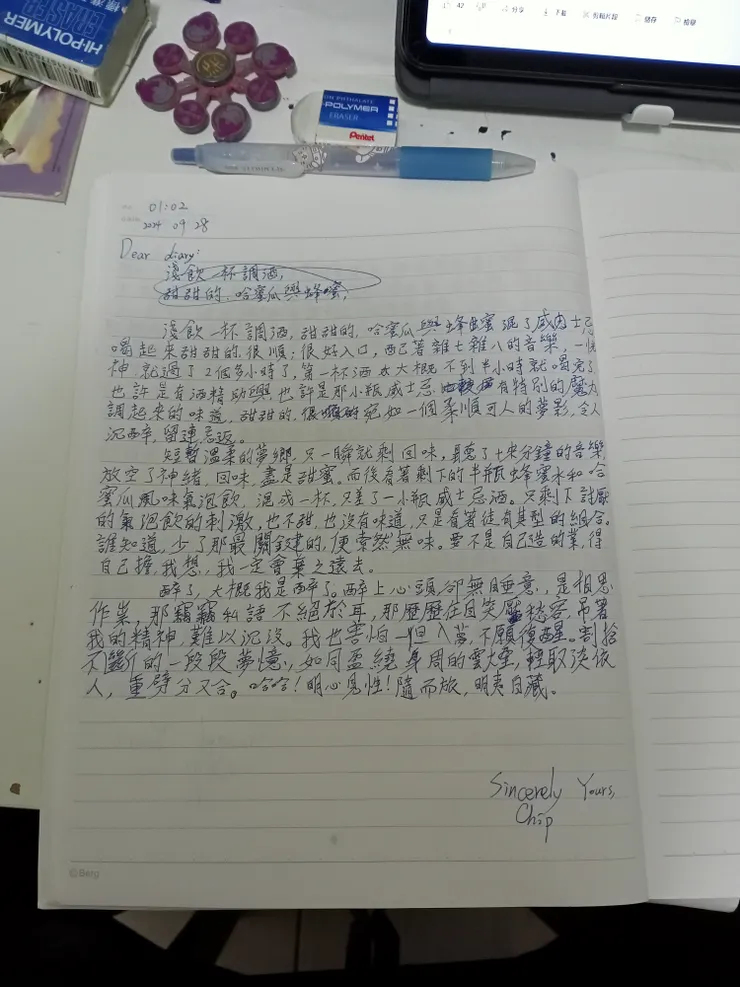 42
分享
下載
剪輯片段
儲存
檢舉
HI-POLYMER
ERASER
POLYMER
ERASER
Pentel
01:02
2024 09 28
Dear diary:
淺飲一杯調酒,
甜甜的, 哈蜜瓜與蜂蜜,
淺飲一杯調酒, 甜甜的, 哈蜜瓜與蜂蜜混了威士忌
喝起來甜甜的很順; 很好入口, 配著雜七雜八的音樂, 一恍
神就過了2個多小時了, 第一杯酒大概不到半小時就喝完了
也許是有酒精助興也許是那小瓶威士忌有特別的魔力
調起來的味道, 甜甜的, 宛如一個柔順可人的夢影, 令人
沉醉, 留連忘返。
短暫溫柔的夢鄉, 只一瞬就剩回味, 聽了十來分鐘的音樂
放空了神緒, 回味, 盡是甜蜜。而後看著剩下的半瓶蜂蜜水和哈
蜜瓜風味氣泡飲, 混成一杯, 只差了一小瓶威士忌酒。只剩下討厭
的氣泡飲的刺激, 也不甜, 也沒有味道, 只是看著徒有其型的組合。
誰知道, 少了那最關鍵的, 便索然無味。要不是自己造的業, 得
自己擔, 我想, 我一定會棄之遠去。
醉了, 大概我是醉了。醉上心頭卻無睡意, 是相思
作祟, 那竊竊私語不絕於耳, 那歷歷在目笑靨愁容吊著
我的精神, 難以沉沒。我也害怕一但入夢, 不願復醒。割捨
不斷的一段段夢憶, 如同盃繞身周的雲煙, 輕取淡依
人, 重劈分又合。哈哈! 明心見性! 隨而旅, 明夷自藏。
Sincerely Yours,
Chip
©Berg